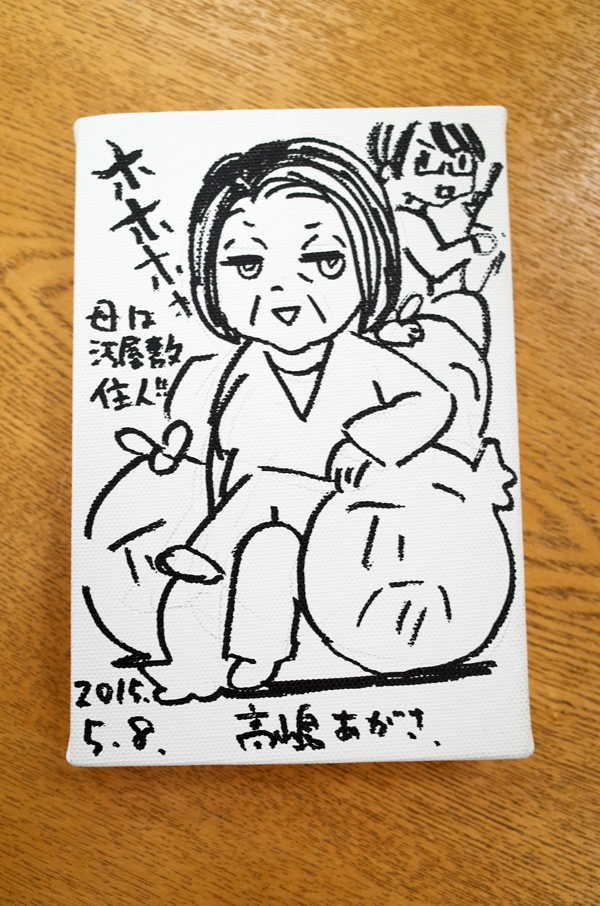 ホホホ
母は
汚屋敷
住人!!
2015.
5.8.
高嶋あがさ.